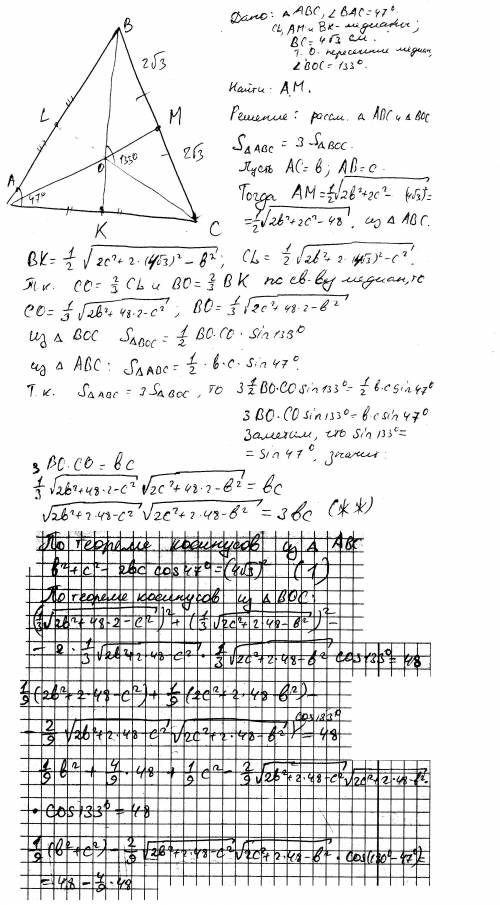 B
2√3
L
M
2√3
O
133°
A
47°
K
C
Дано: △ABC, ∠BAC=47°
CL, AM и BK - медианы;
BC=4√3 см.
т. O - пересечение медиан,
∠BOC=133°.
Найти: AM.
Решение: рассм. △ ABC и △BOC
S△ABC = 3 S△BOC.
Пусть AC=b; AB=c.
Тогда AM=1/2√(2b²+2c²-(4√3)²)=
=1/2√(2b²+2c²-48), из △ ABC.
BK=1/2 √(2c²+2·(4√3)²-b²); CL=1/2 √(2b²+2·(4√3)²-c²).
Т.к. CO=2/3 CL и BO=2/3 BK по св-ву медиан, то
CO=1/3√(2b²+48·2-c²); BO=1/3√(2c²+48·2-b²)
из △ BOC S△BOC=1/2 BO·CO·sin133°
из △ ABC: S△ABC=1/2·b·c·sin47°.
Т.к. S△ABC=3S△BOC, то 3·1/2BO·CO sin133°=1/2 b·c sin47°
3BO·CO sin133°=b·c sin47°
Заметим, что sin133°=
=sin47°, значит:
3 BO·CO=bc
1/3√(2b²+48·2-c²) √(2c²+48·2-b²)=bc
√(2b²+2·48-c²) √(2c²+2·48-b²)=3bc (**)
По теореме косинусов из △ ABC
b²+c²-2bc cos47°=(4√3)² (1)
По теореме косинусов из △BOC:
(1/3√(2b²+48·2-c²))²+(1/3√(2c²+2·48-b²))²-
-2·1/3√(2b²+2·48-c²)·1/3√(2c²+2·48-b²) cos133°=48
1/9(2b²+2·48-c²)+1/9(2c²+2·48-b²)-
-2/9√(2b²+2·48-c²)√(2c²+2·48-b²) cos133°=48
1/9b²+4/9·48+1/9c²-2/9√(2b²+2·48-c²)√(2c²+2·48-b²)·
·cos133°=48
1/9(b²+c²)-2/9√(2b²+2·48-c²)√(2c²+2·48-b²)·cos(180°-47°)=
=48-4/9·48